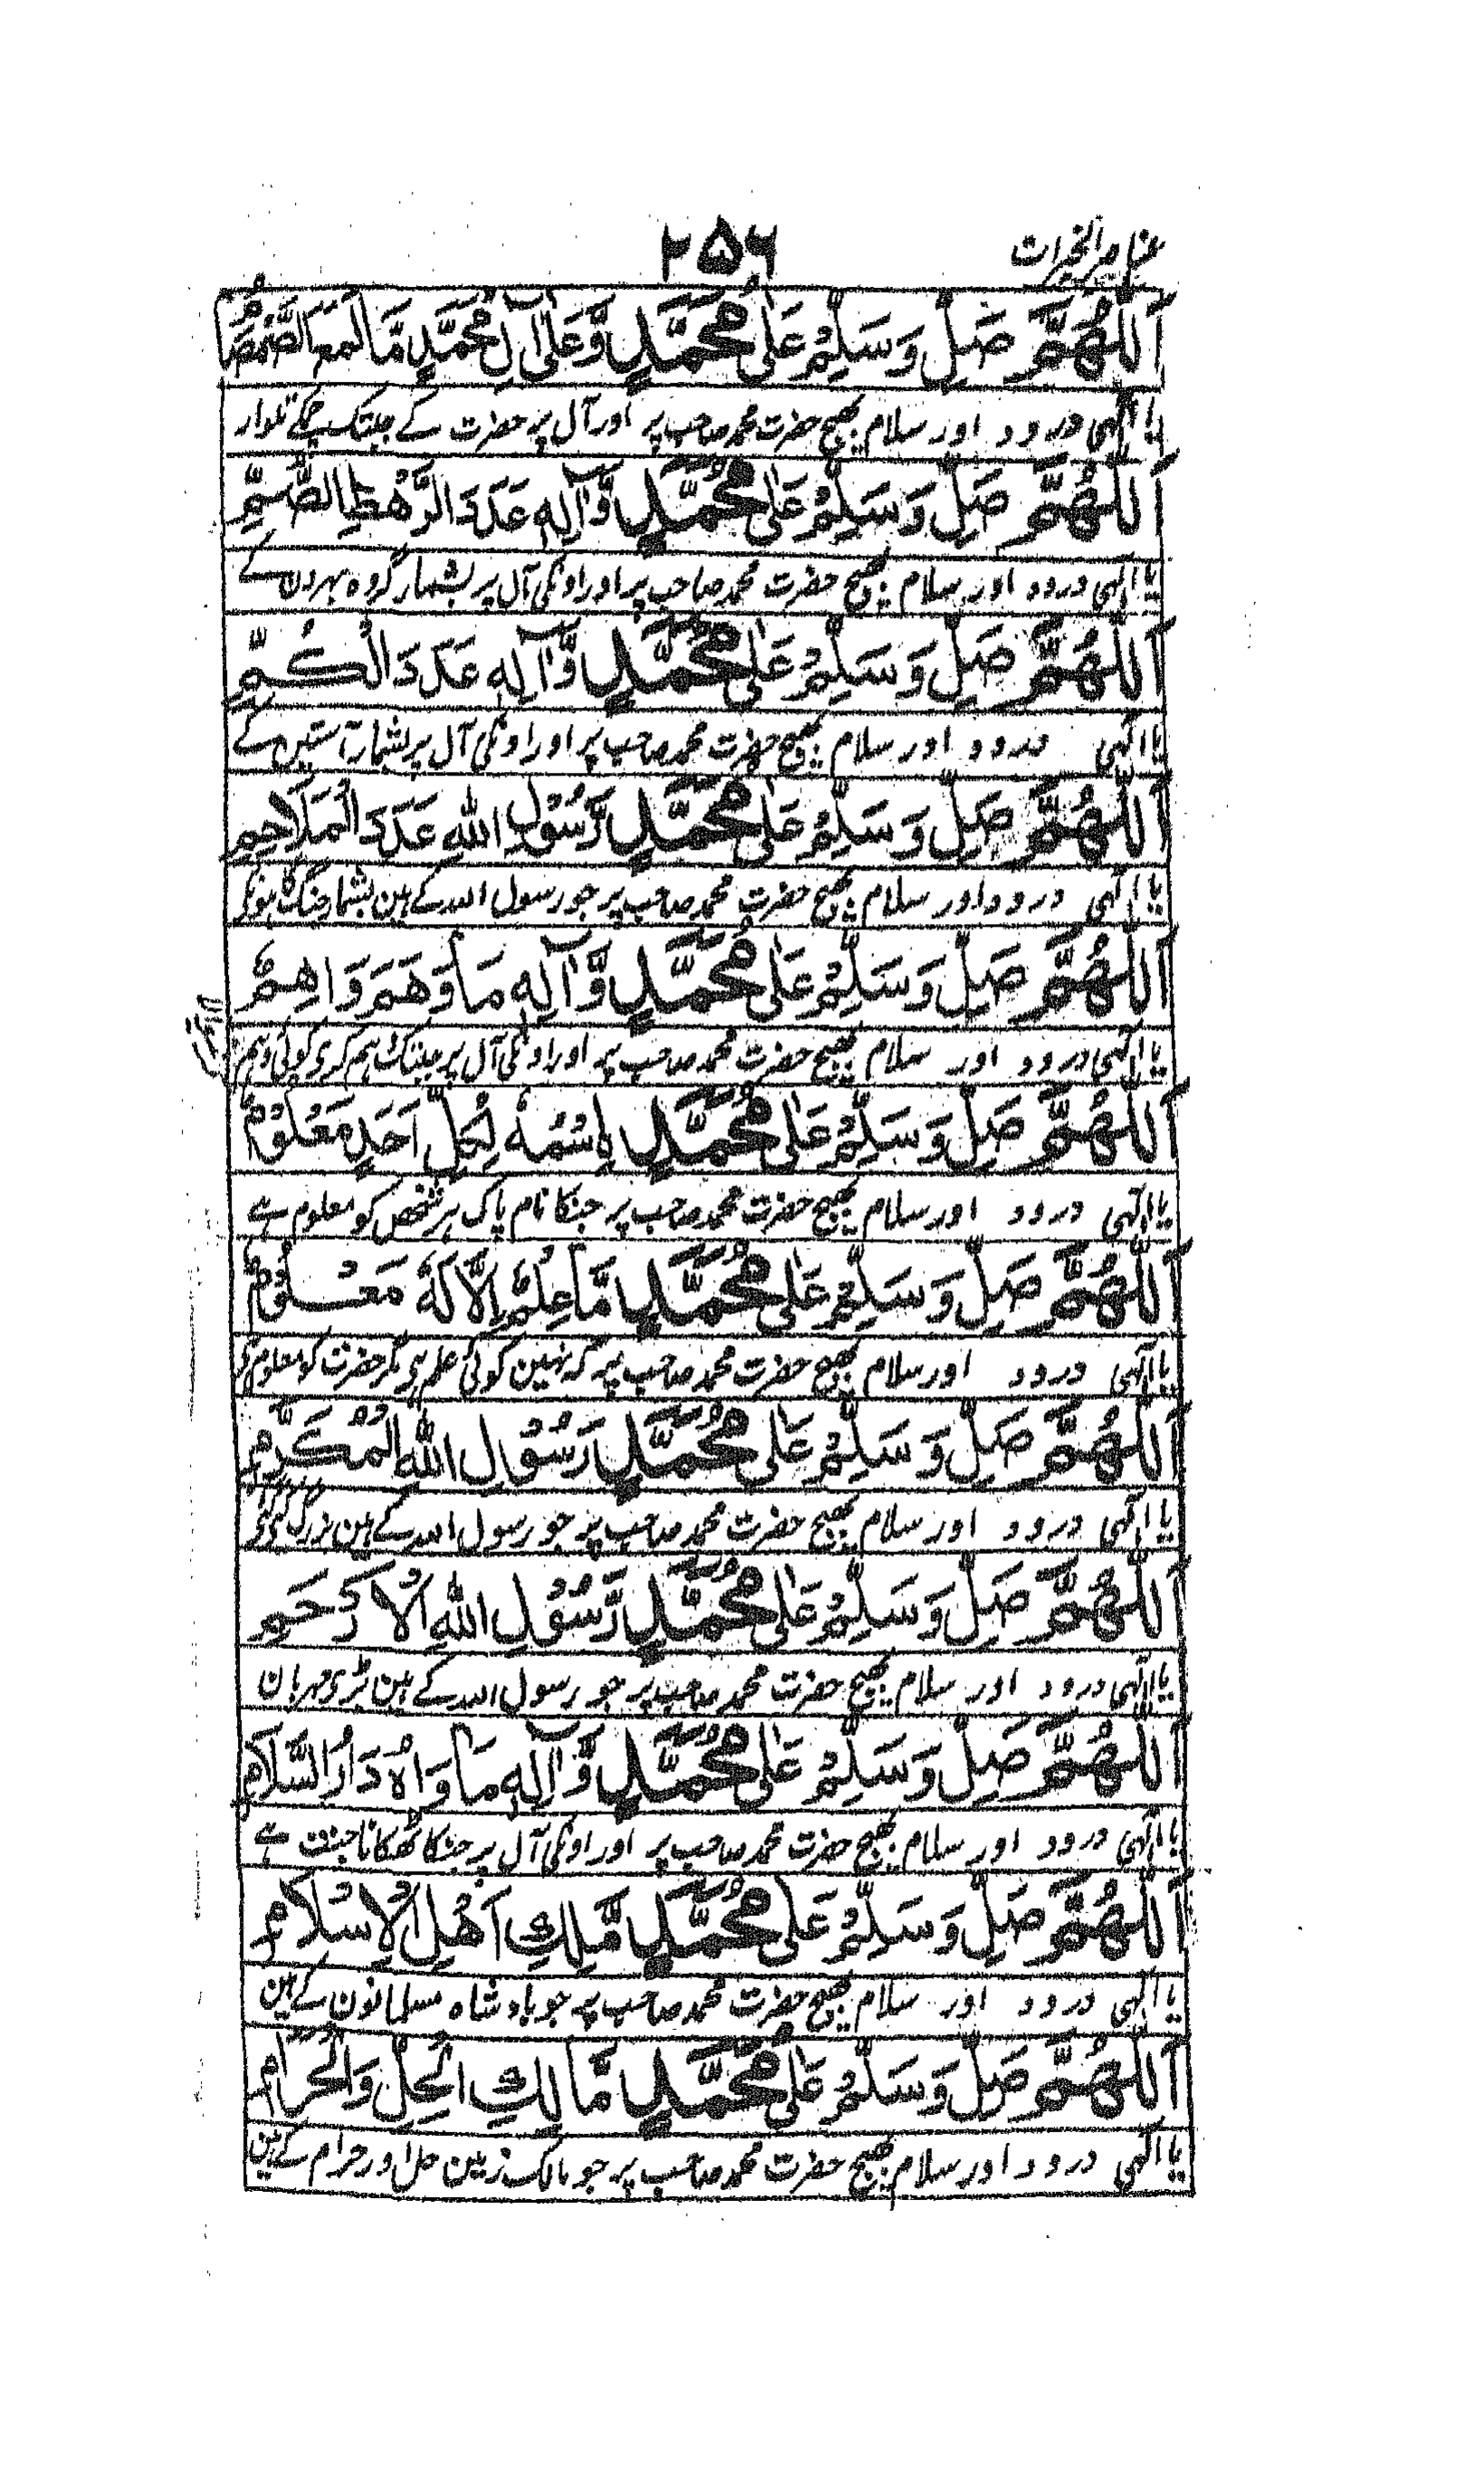 عناصر الخیرات
۲۵۶
اَللّٰهُمَّ صَلِّ وَسَلِّمْ عَلٰى مُحَمَّدٍ وَّعَلٰى آلِ مُحَمَّدٍ مَّا لَمَعَ الصَّمْصَامُ
یا الٰہی درود اور سلام بھیج حضرت محمد صاحب پر اور آل پر حضرت کے جبتک چمکے تلوار
اَللّٰهُمَّ صَلِّ وَسَلِّمْ عَلٰى مُحَمَّدٍ وَّآلِهٖ عَدَدَ الرَّهْطِ الصُّمِّ
یا الٰہی درود اور سلام بھیج حضرت محمد صاحب پر اور اونکی آل پر بشمار گروہ بہرون کے
اَللّٰهُمَّ صَلِّ وَسَلِّمْ عَلٰى مُحَمَّدٍ وَّآلِهٖ عَدَدَ الْكُمِّ
یا الٰہی درود اور سلام بھیج حضرت محمد صاحب پر اور اونکی آل پر بشمار آستین کے
اَللّٰهُمَّ صَلِّ وَسَلِّمْ عَلٰى مُحَمَّدٍ رَّسُوْلِ اللهِ عَدَدَ الْمَلَاحِمِ
یا الٰہی درود اور سلام بھیج حضرت محمد صاحب پر جو رسول اللہ کے ہین بشمار جنگ گاہونکے
اَللّٰهُمَّ صَلِّ وَسَلِّمْ عَلٰى مُحَمَّدٍ وَّآلِهٖ مَا وَهَمَ وَاهِمٌ
یا الٰہی درود اور سلام بھیج حضرت محمد صاحب پر اور اونکی آل پر جبتک وہم کرے کوئی وہم
اَللّٰهُمَّ صَلِّ وَسَلِّمْ عَلٰى مُحَمَّدٍ اِسْمُهٗ لِكُلِّ اَحَدٍ مَعْلُوْمٌ
یا الٰہی درود اور سلام بھیج حضرت محمد صاحب پر جنکا نام پاک ہر شخص کو معلوم ہے
اَللّٰهُمَّ صَلِّ وَسَلِّمْ عَلٰى مُحَمَّدٍ مَّا عِلْمٌ اِلَّا لَهٗ مَعْلُوْمٌ
یا الٰہی درود اور سلام بھیج حضرت محمد صاحب پر کہ نہین کوئی علم ہے مگر حضرت کو معلوم ہے
اَللّٰهُمَّ صَلِّ وَسَلِّمْ عَلٰى مُحَمَّدٍ رَسُوْلِ اللهِ الْمُكَرَّمِ
یا الٰہی درود اور سلام بھیج حضرت محمد صاحب پر جو رسول اللہ کے ہین بزرگ
اَللّٰهُمَّ صَلِّ وَسَلِّمْ عَلٰى مُحَمَّدٍ رَّسُوْلِ اللهِ الْاَرْحَمِ
یا الٰہی درود اور سلام بھیج حضرت محمد صاحب پر جو رسول اللہ کے ہین بڑے مہربان
اَللّٰهُمَّ صَلِّ وَسَلِّمْ عَلٰى مُحَمَّدٍ وَّآلِهٖ مَاْوَاهُ دَارُ السَّلَامِ
یا الٰہی درود اور سلام بھیج حضرت محمد صاحب پر اور اونکی آل پر جنکا ٹھکانا جنت ہے
اَللّٰهُمَّ صَلِّ وَسَلِّمْ عَلٰى مُحَمَّدٍ مَّلِكِ اَهْلِ الْاِسْلَامِ
یا الٰہی درود اور سلام بھیج حضرت محمد صاحب پر جو بادشاہ مسلمانون کے ہین
اَللّٰهُمَّ صَلِّ وَسَلِّمْ عَلٰى مُحَمَّدٍ مَّالِكِ الْحِلِّ وَالْحَرَامِ
یا الٰہی درود اور سلام بھیج حضرت محمد صاحب پر جو مالک زمین حل اور حرام کے ہین